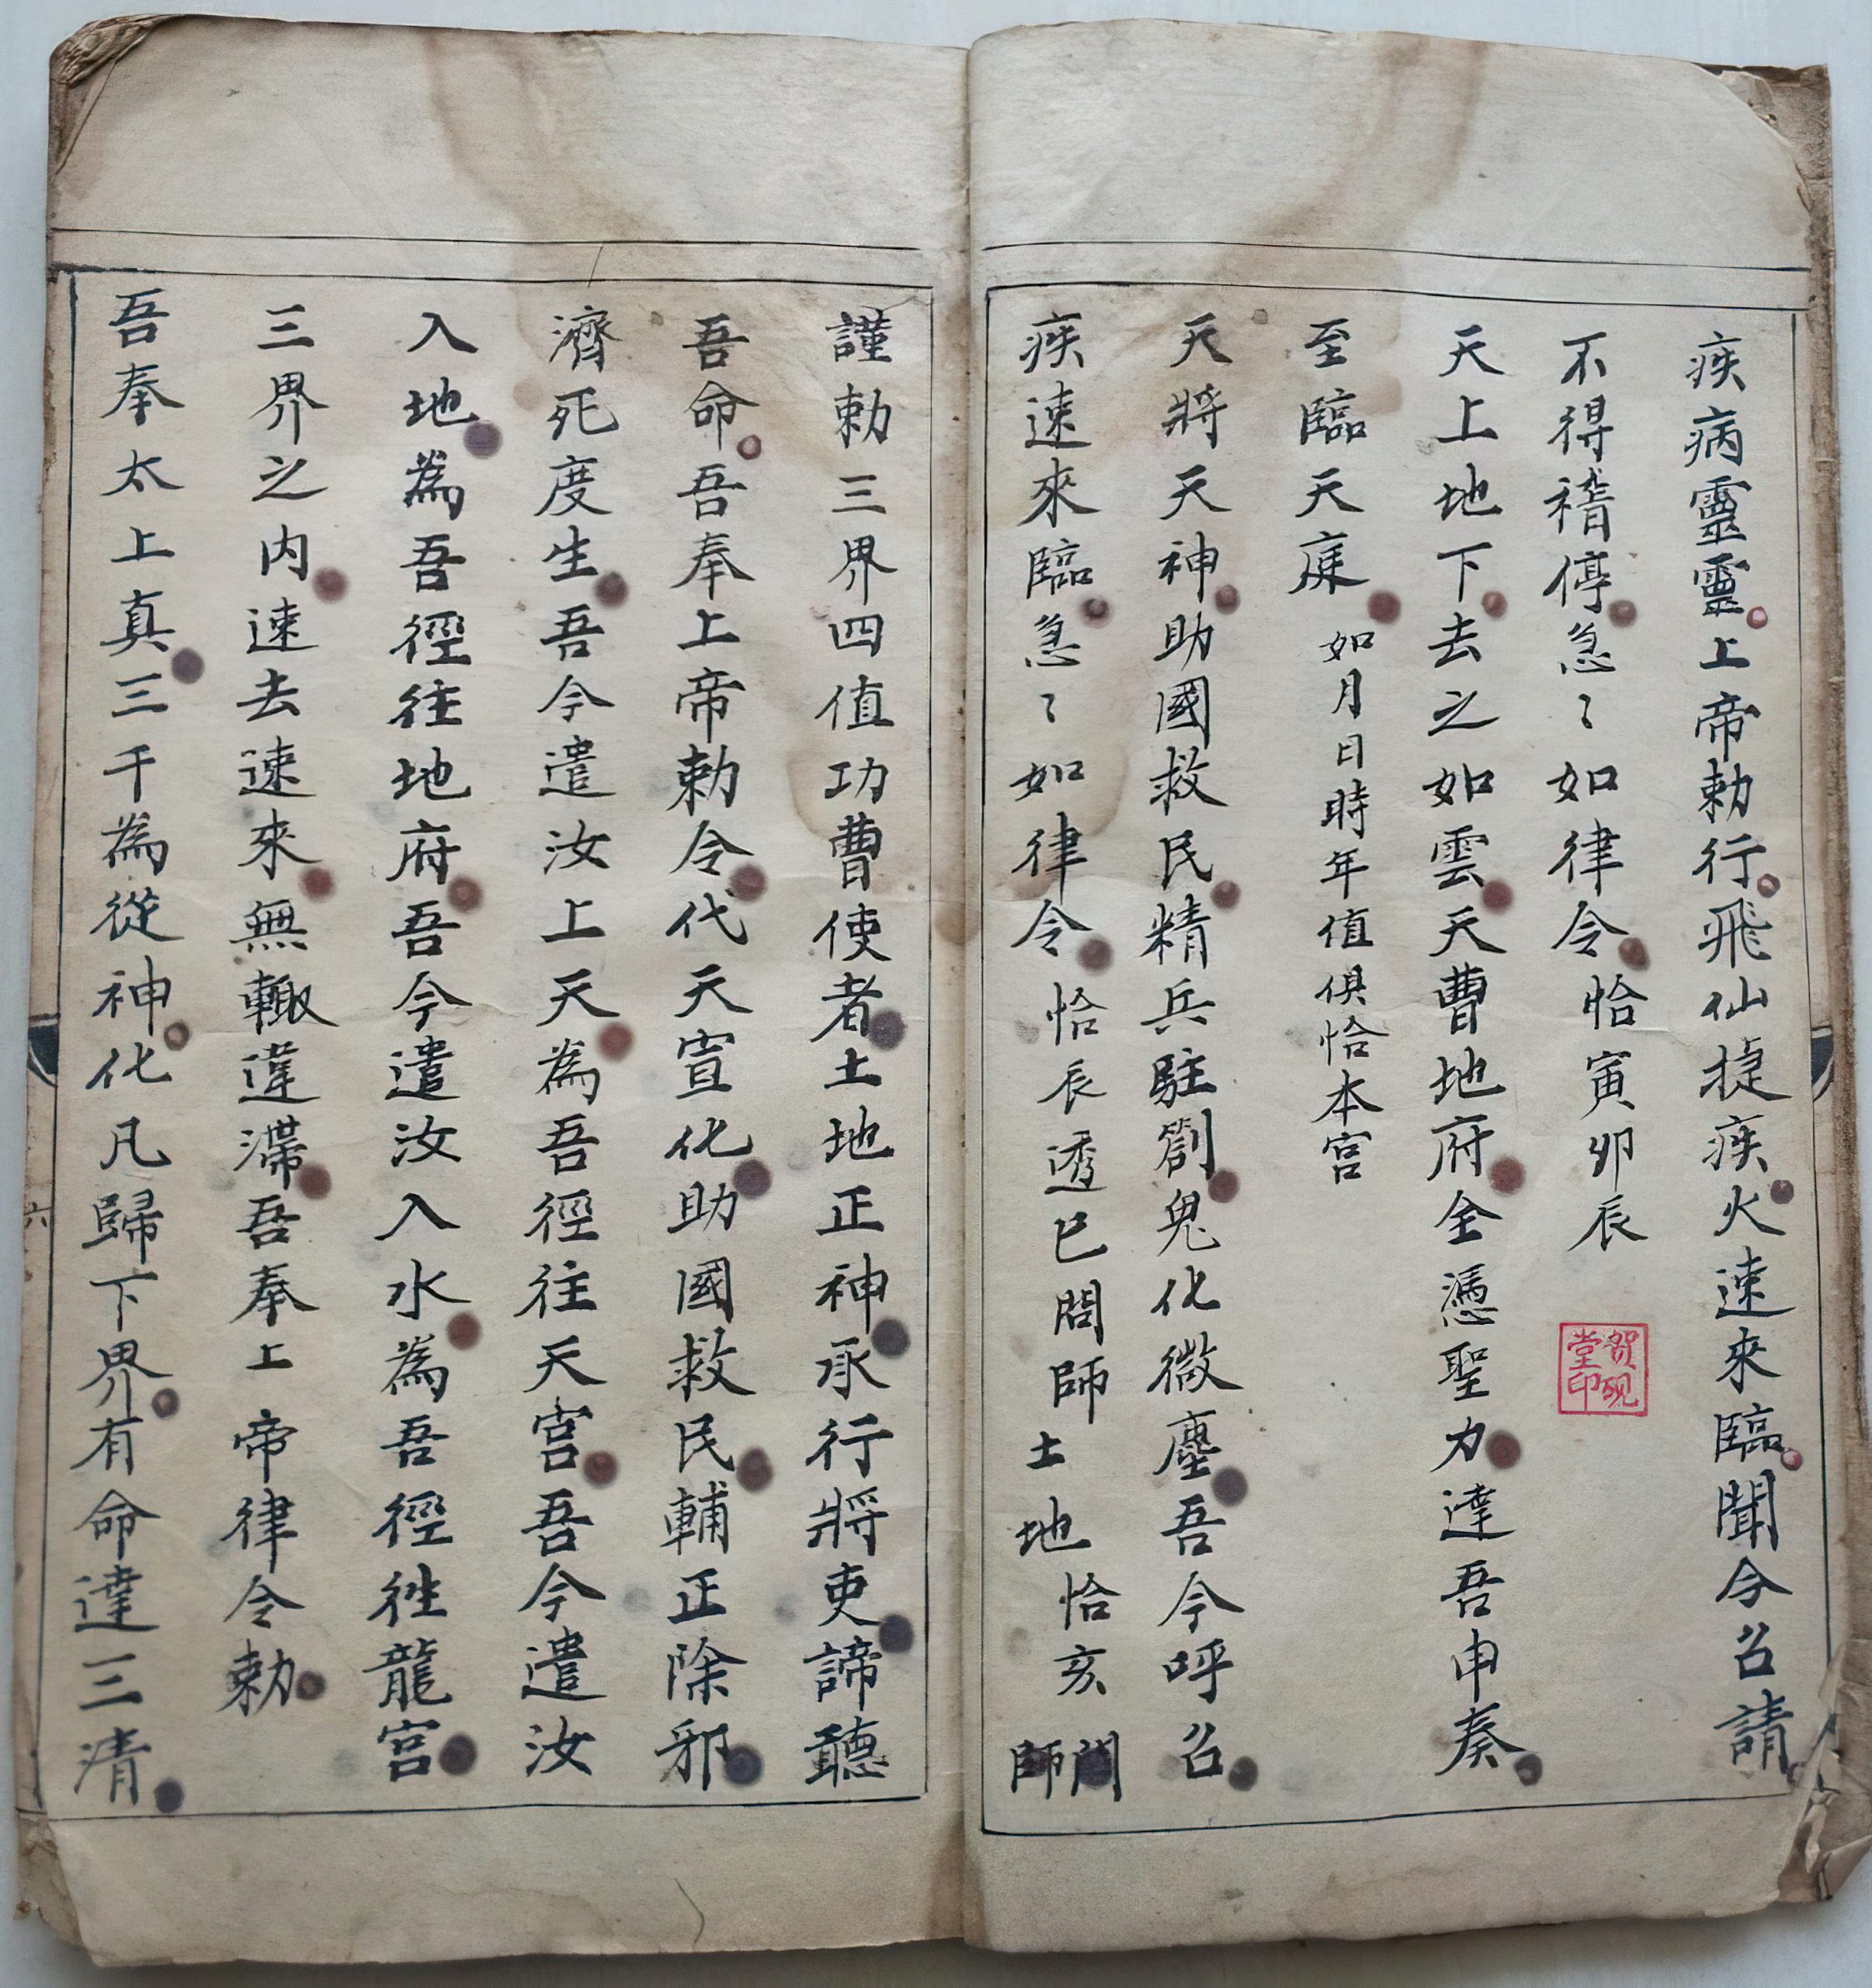 疾病靈靈上帝勅行飛仙捷疾火速來臨聞今召請
不得稽停急〻如律令恰寅卯辰
天上地下去之如雲天曹地府全憑聖力達吾申奏
至臨天庭如月日時年值俱恰本宫
天將天神助國救民精兵駐劄鬼化微塵吾今呼召
疾速來臨急〻如律令恰辰透巳問師土地恰亥問師
謹勅三界四值功曹使者土地正神承行將吏諦聽
吾命吾奉上帝勅令代天宣化助國救民輔正除邪
濟死度生吾今遣汝上天為吾徑往天宫吾今遣汝
入地為吾徑往地府吾今遣汝入水為吾徑往龍宫
三界之内速去速來無輙違滯吾奉上帝律令勅
吾奉太上真三千為從神化凡歸下界有命達三清
賀硯堂印
六